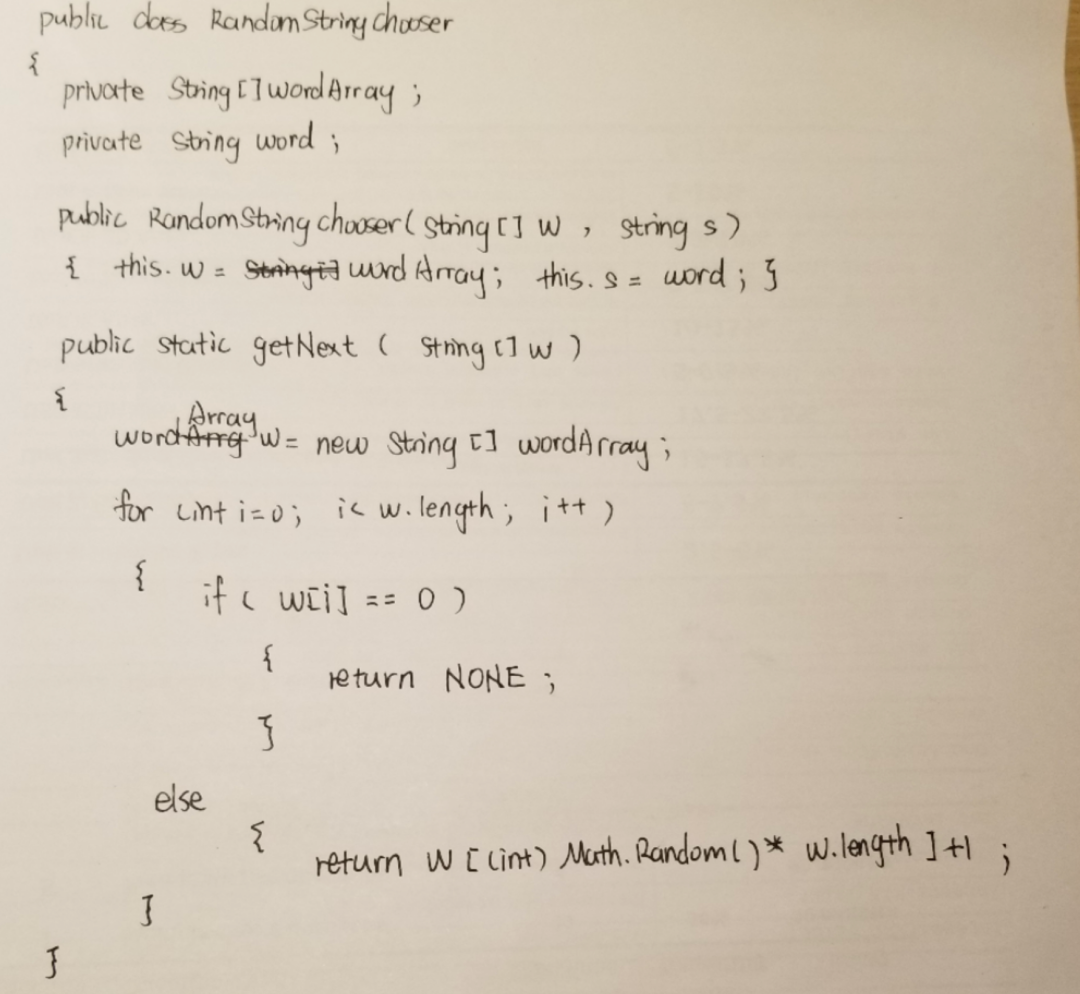 public class RandomStringChooser
{
private String[] wordArray ;
private String word ;
public RandomStringChooser( String[] w , string s )
{ this. w = String[] word Array; this. s = word ; }
public static getNext ( String [] w )
{
Array
wordArrg w = new String [] wordArray ;
for (int i=0; i< w.length ; i++ )
{
if ( w[i] == 0 )
{
return NONE ;
}
else
{
return w [ (int) Math.Random()* w.length ] +1 ;
}
}